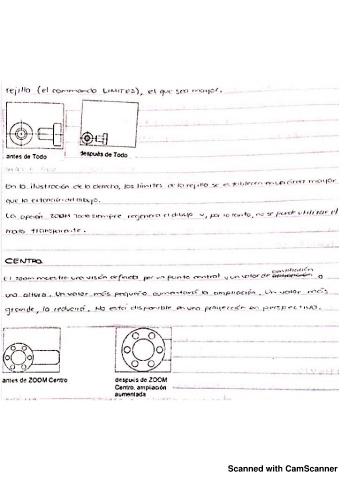 rejilla (el commando LIMITES), el que sea mayor.
antes de Todo
después de Todo
En la ilustración de la derecha, los límites de la rejilla se establecen en un área mayor
que la extensión del dibujo.
La opción ZOOM Todo siempre regenera el dibujo y, por lo tanto, no se puede utilizar el
modo transparente.
CENTRO.
El zoom muestra una visión definida por un punto central y un valor de ampliación o
una altura. Un valor más pequeño aumentaría la ampliación. Un valor más
grande, la reduciría. No está disponible en una proyección en perspectiva.
antes de ZOOM Centro
después de ZOOM
Centro, ampliación
aumentada
Scanned with CamScanner